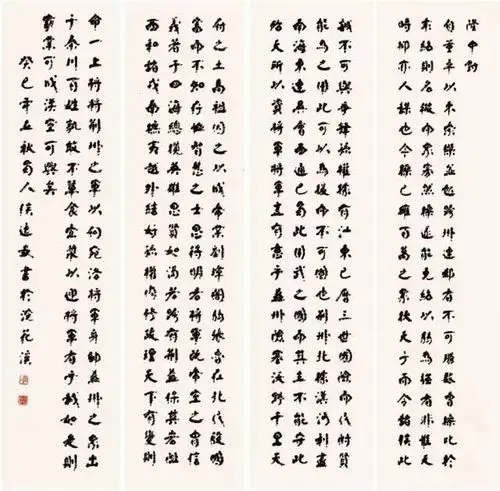 隆中對
自董卓以來豪傑並起跨州連郡者不可勝數曹操比於
袁紹則名微而眾寡然操遂能克紹以弱為強者非惟天
時抑亦人謀也今操已擁百萬之眾挾天子而令諸侯此
誠不可與爭鋒孫權據有江東已歷三世國險而民附賢
能為之用此可以為援而不可圖也荊州北據漢沔利盡
南海東連吳會西通巴蜀此用武之國而其主不能守此
殆天所以資將軍將軍豈有意乎益州險塞沃野千里天
府之土高祖因之以成帝業劉璋闇弱張魯在北民殷國
富而不知存恤智能之士思得明君將軍既帝室之胄信
義著于四海總攬英雄思賢如渴若跨有荊益保其岩阻
西和諸戎南撫夷越外結好孫權內修政理天下有變則
命一上將將荊州之軍以向宛洛將軍身率益州之眾出
于秦川百姓孰敢不簞食壺漿以迎將軍者乎誠如是則
霸業可成漢室可興矣
癸巳年孟秋蜀人侯遠書於浣花溪